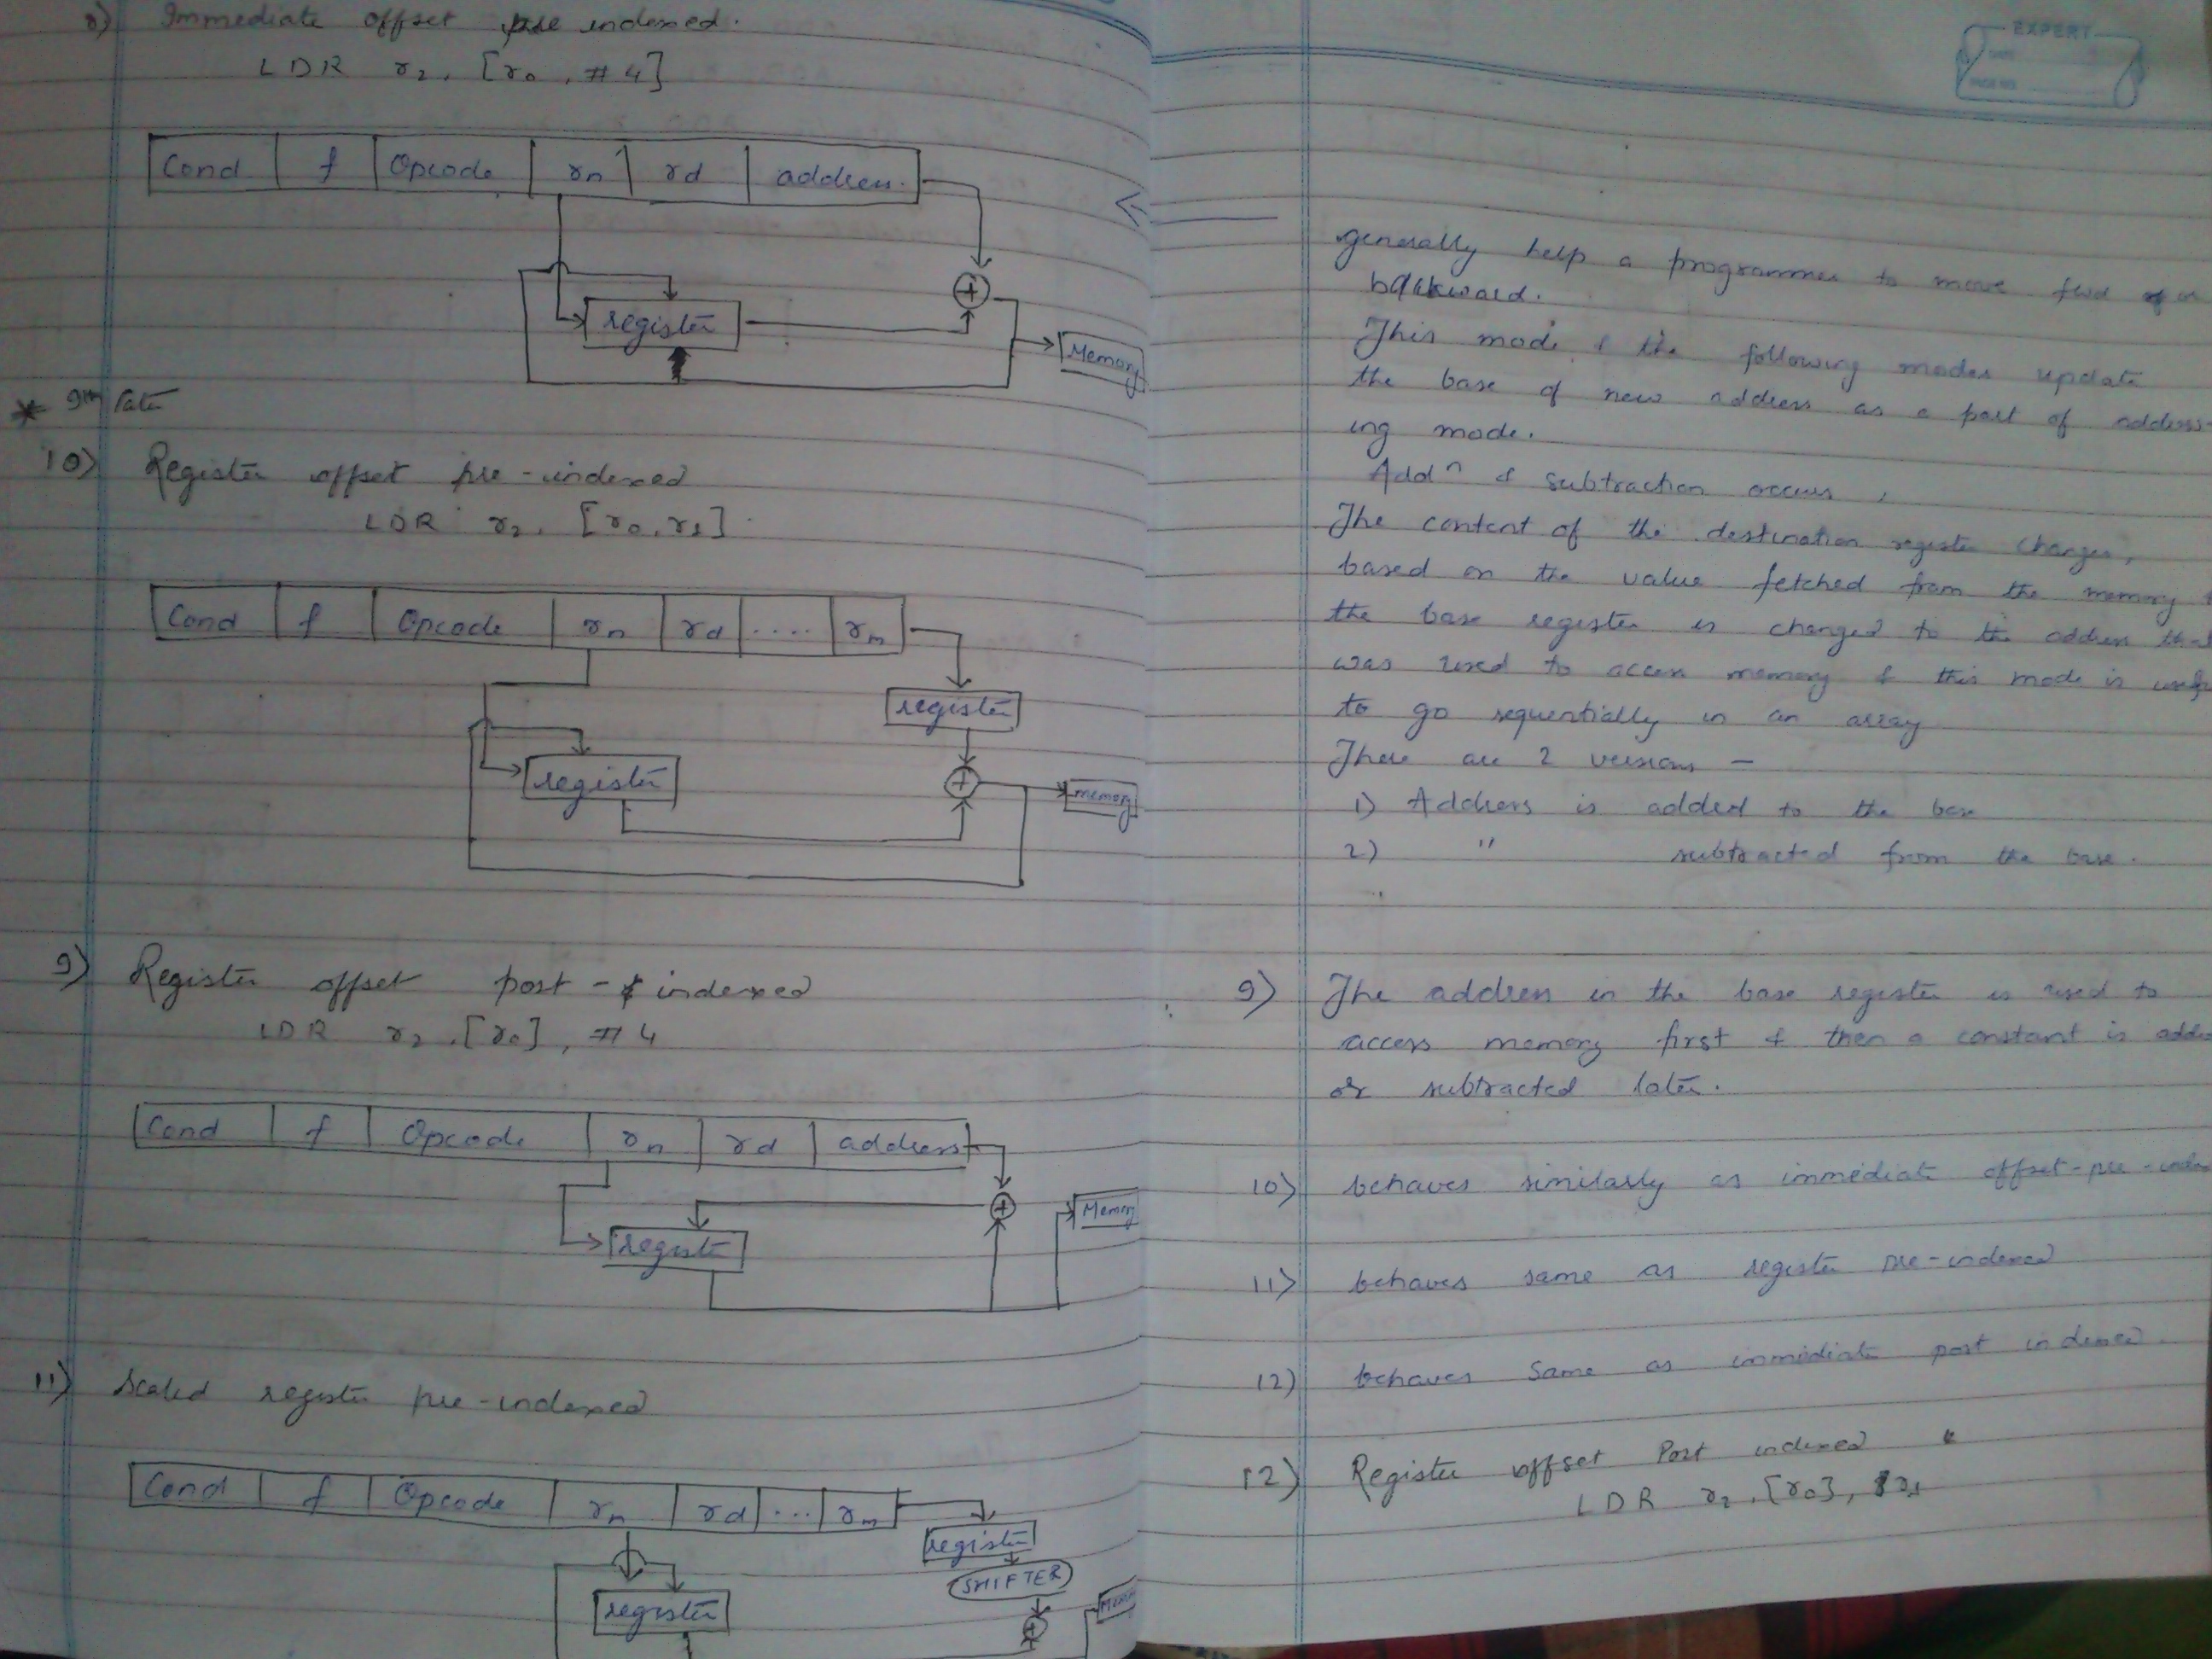 8) Immediate offset pre indexed.
LDR r2, [r0, #4]
Cond f Opcode rn rd address.
+
register
Memory
* 9th later
10) Register offset pre-indexed
LDR r2, [r0, r1].
Cond f Opcode rn rd .... rm
register
register
+
memory
9) Register offset post - indexed
LDR r2, [r0], #4
Cond f Opcode rn rd address
+
Memory
register
11) Scaled register pre-indexed
Cond f Opcode rn rd ... rm
register
SHIFTER
register
+
EXPERT
DATE
PAGE NO.
generally help a programmer to move fwd or
backward.
This mode & the following modes update
the base of new address as a part of address-
ing mode.
Addn & subtraction occurs,
The content of the destination register changes,
based on the value fetched from the memory
the base register is changed to the address
was used to access memory & this mode is
to go sequentially in an array
There are 2 versions -
1) Address is added to the base
2) " subtracted from the base.
9) The address in the base register is used to
access memory first & then a constant is
or subtracted later.
10) behaves similarly as immediate offset-pre-
11) behaves same as register pre-indexed
12) behaves same as immediate post indexed.
12) Register offset Post indexed
LDR r2, [r0], r1